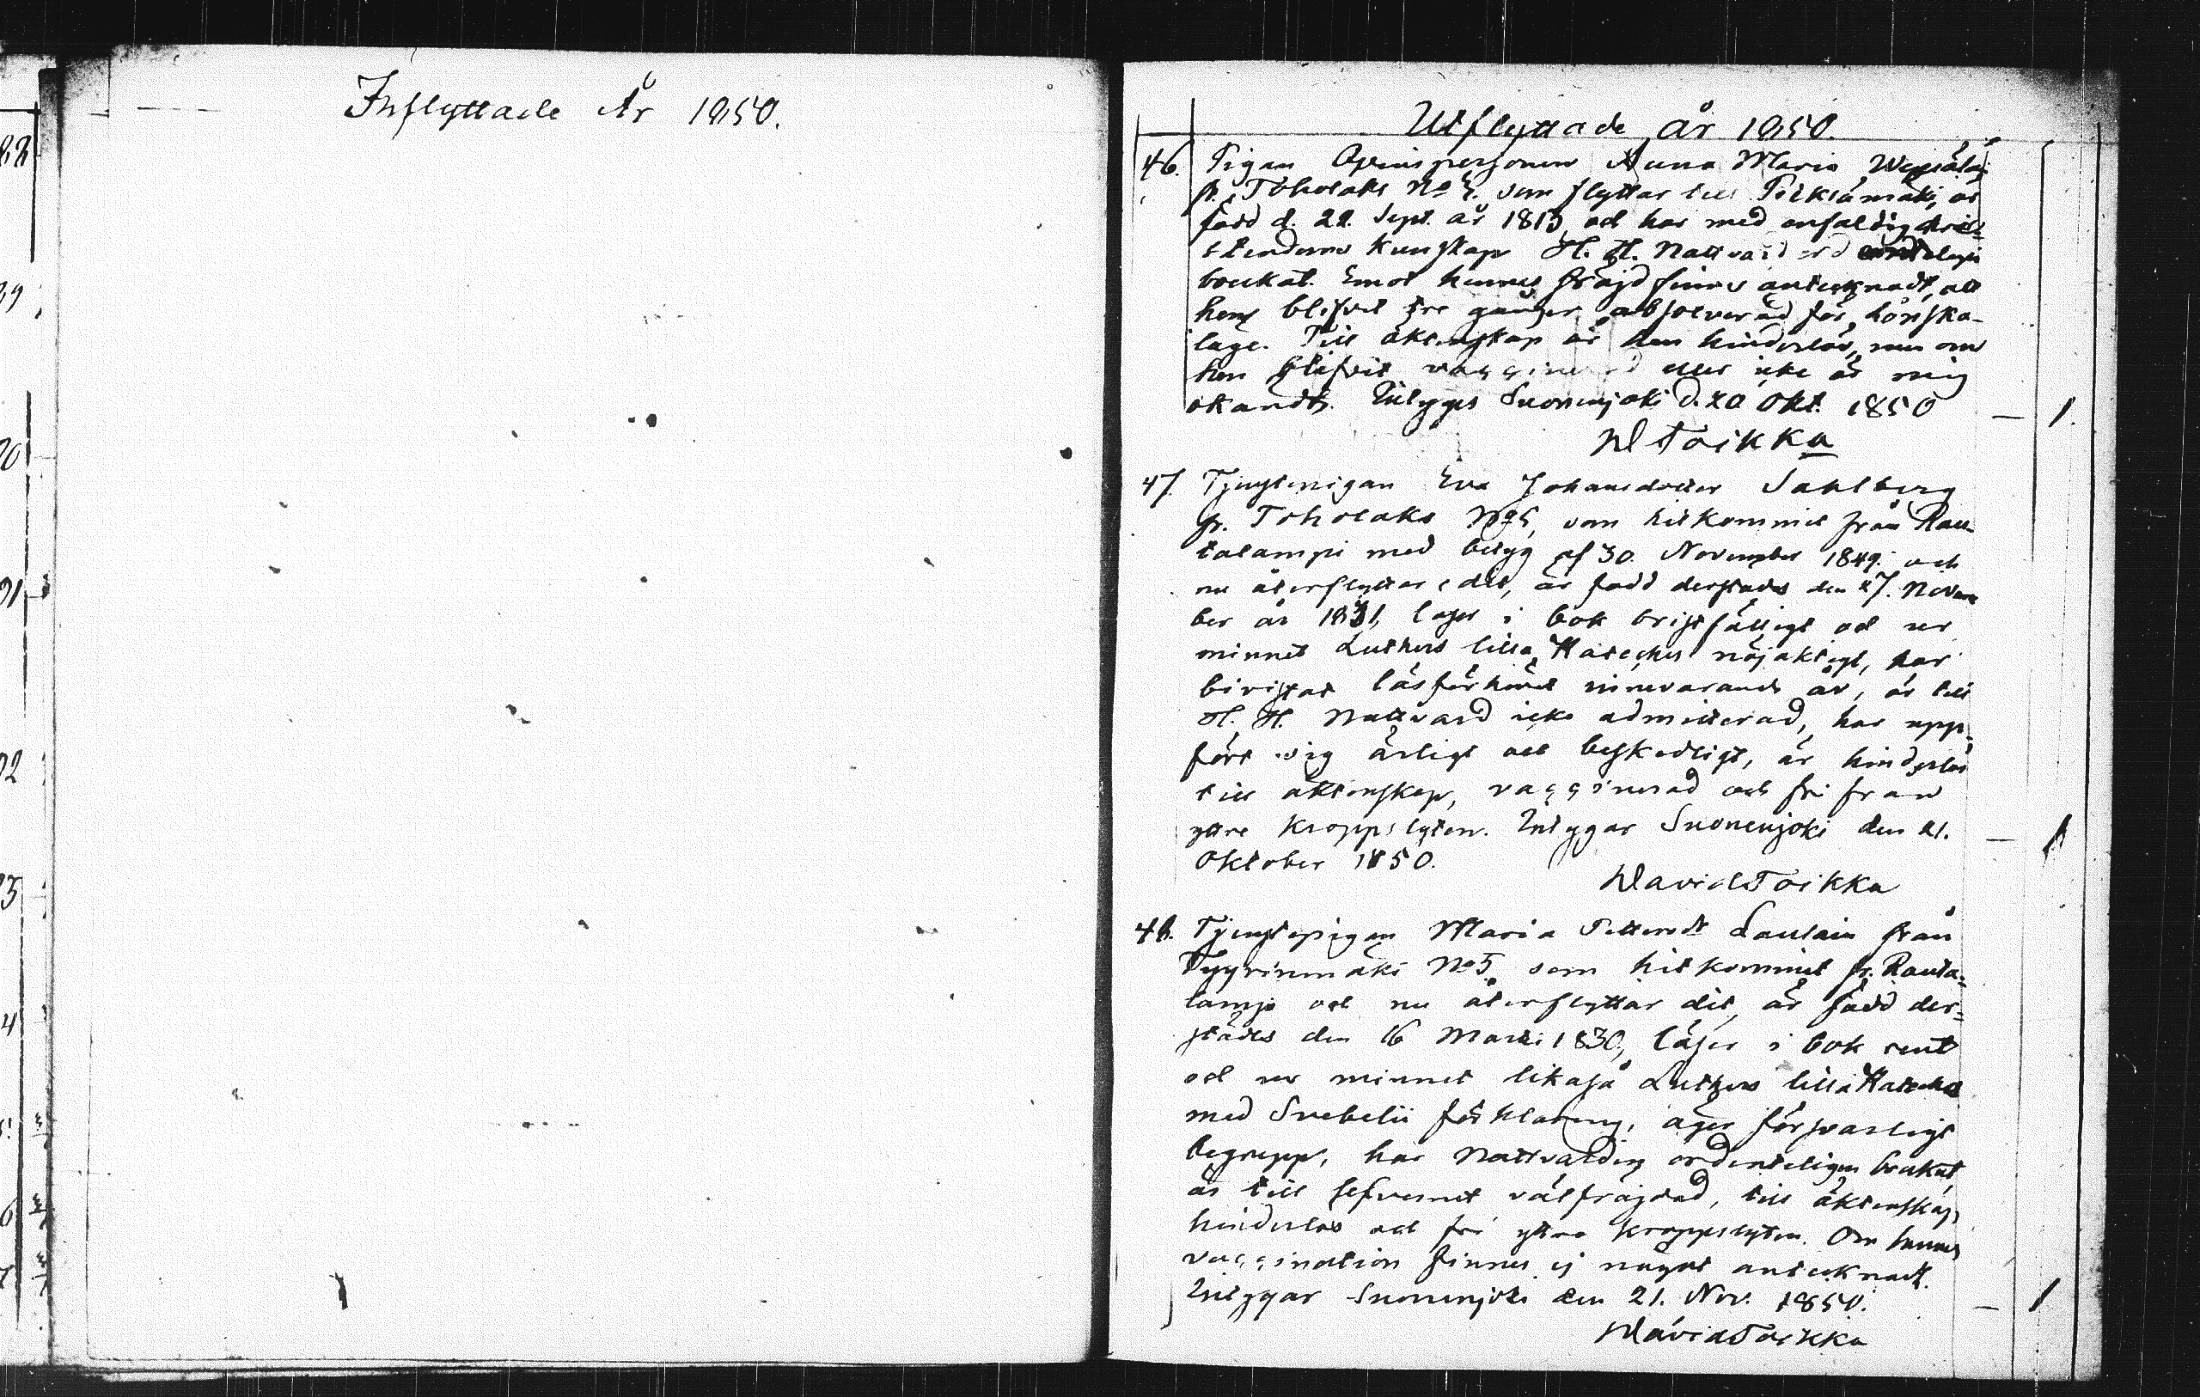 Inflyttade År 1850.
Utflyttade år 1850.
46. Pigan Anna Maria
fr. Toholaks No som flyttar till Pieksämäki, är
född d. 22. Sept. år 1813, och har med enfaldig
kunskap H. H. Nattvard
brukat. Emot hennes fräjd finnes antecknadt, att
hon blifvit tre gånger absolverad för lönska-
läge. Till äktenskap är hon hinderlös, men om
hon blifvit vaccinerad eller icke är mig
okändt. Intygas Suonenjoki d. 20 Okt. 1850 — 1.
D Toikka
47. Tjenstepigan Eva Johansdotter Sahlberg
fr. Toholaks No 5, som hitkommit från Rau-
talampi med betyg af 30. November 1849. och
nu återflyttar dit, är född derstädes den 27. Novem
ber år 1831, läser i bok bristfälligt och ur
minnet Luthers lilla Kateches nöjaktigt, har
bivistat läsförhöret innevarande år, är till
H. H. Nattvard icke admitterad, har upp-
fört sig ärligt och beskedligt, är hinderlös
till äktenskap, vaccinerad och fri från
yttre kroppslyten. Intygar Suonenjoki den 21. — 1
Oktober 1850.
David Toikka
48. Tjenstepigan Maria Pettersdr Laulain från
Tyyrinmäki No 5. som hitkommit fr. Rauta-
lampi och nu återflyttar dit, är född der-
städes den 16 Martii 1830, läser i bok rent
och ur minnet likaså Luthers lilla Kateches
med Svebelii förklaring, äger försvarligt
begrepp, har Nattvarden ordenteligen brukat,
är till lefvernet välfräjdad, till äktenskap
hinderlös och fri yttre kroppslyten. Om hennes
vaccination finnes ej något antecknadt.
Intygar Suonenjoki den 21. Nov. 1850. — 1
David Toikka